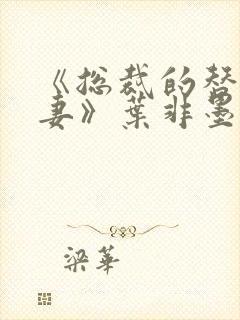 《总裁的替
妻》葉非墨
梁華